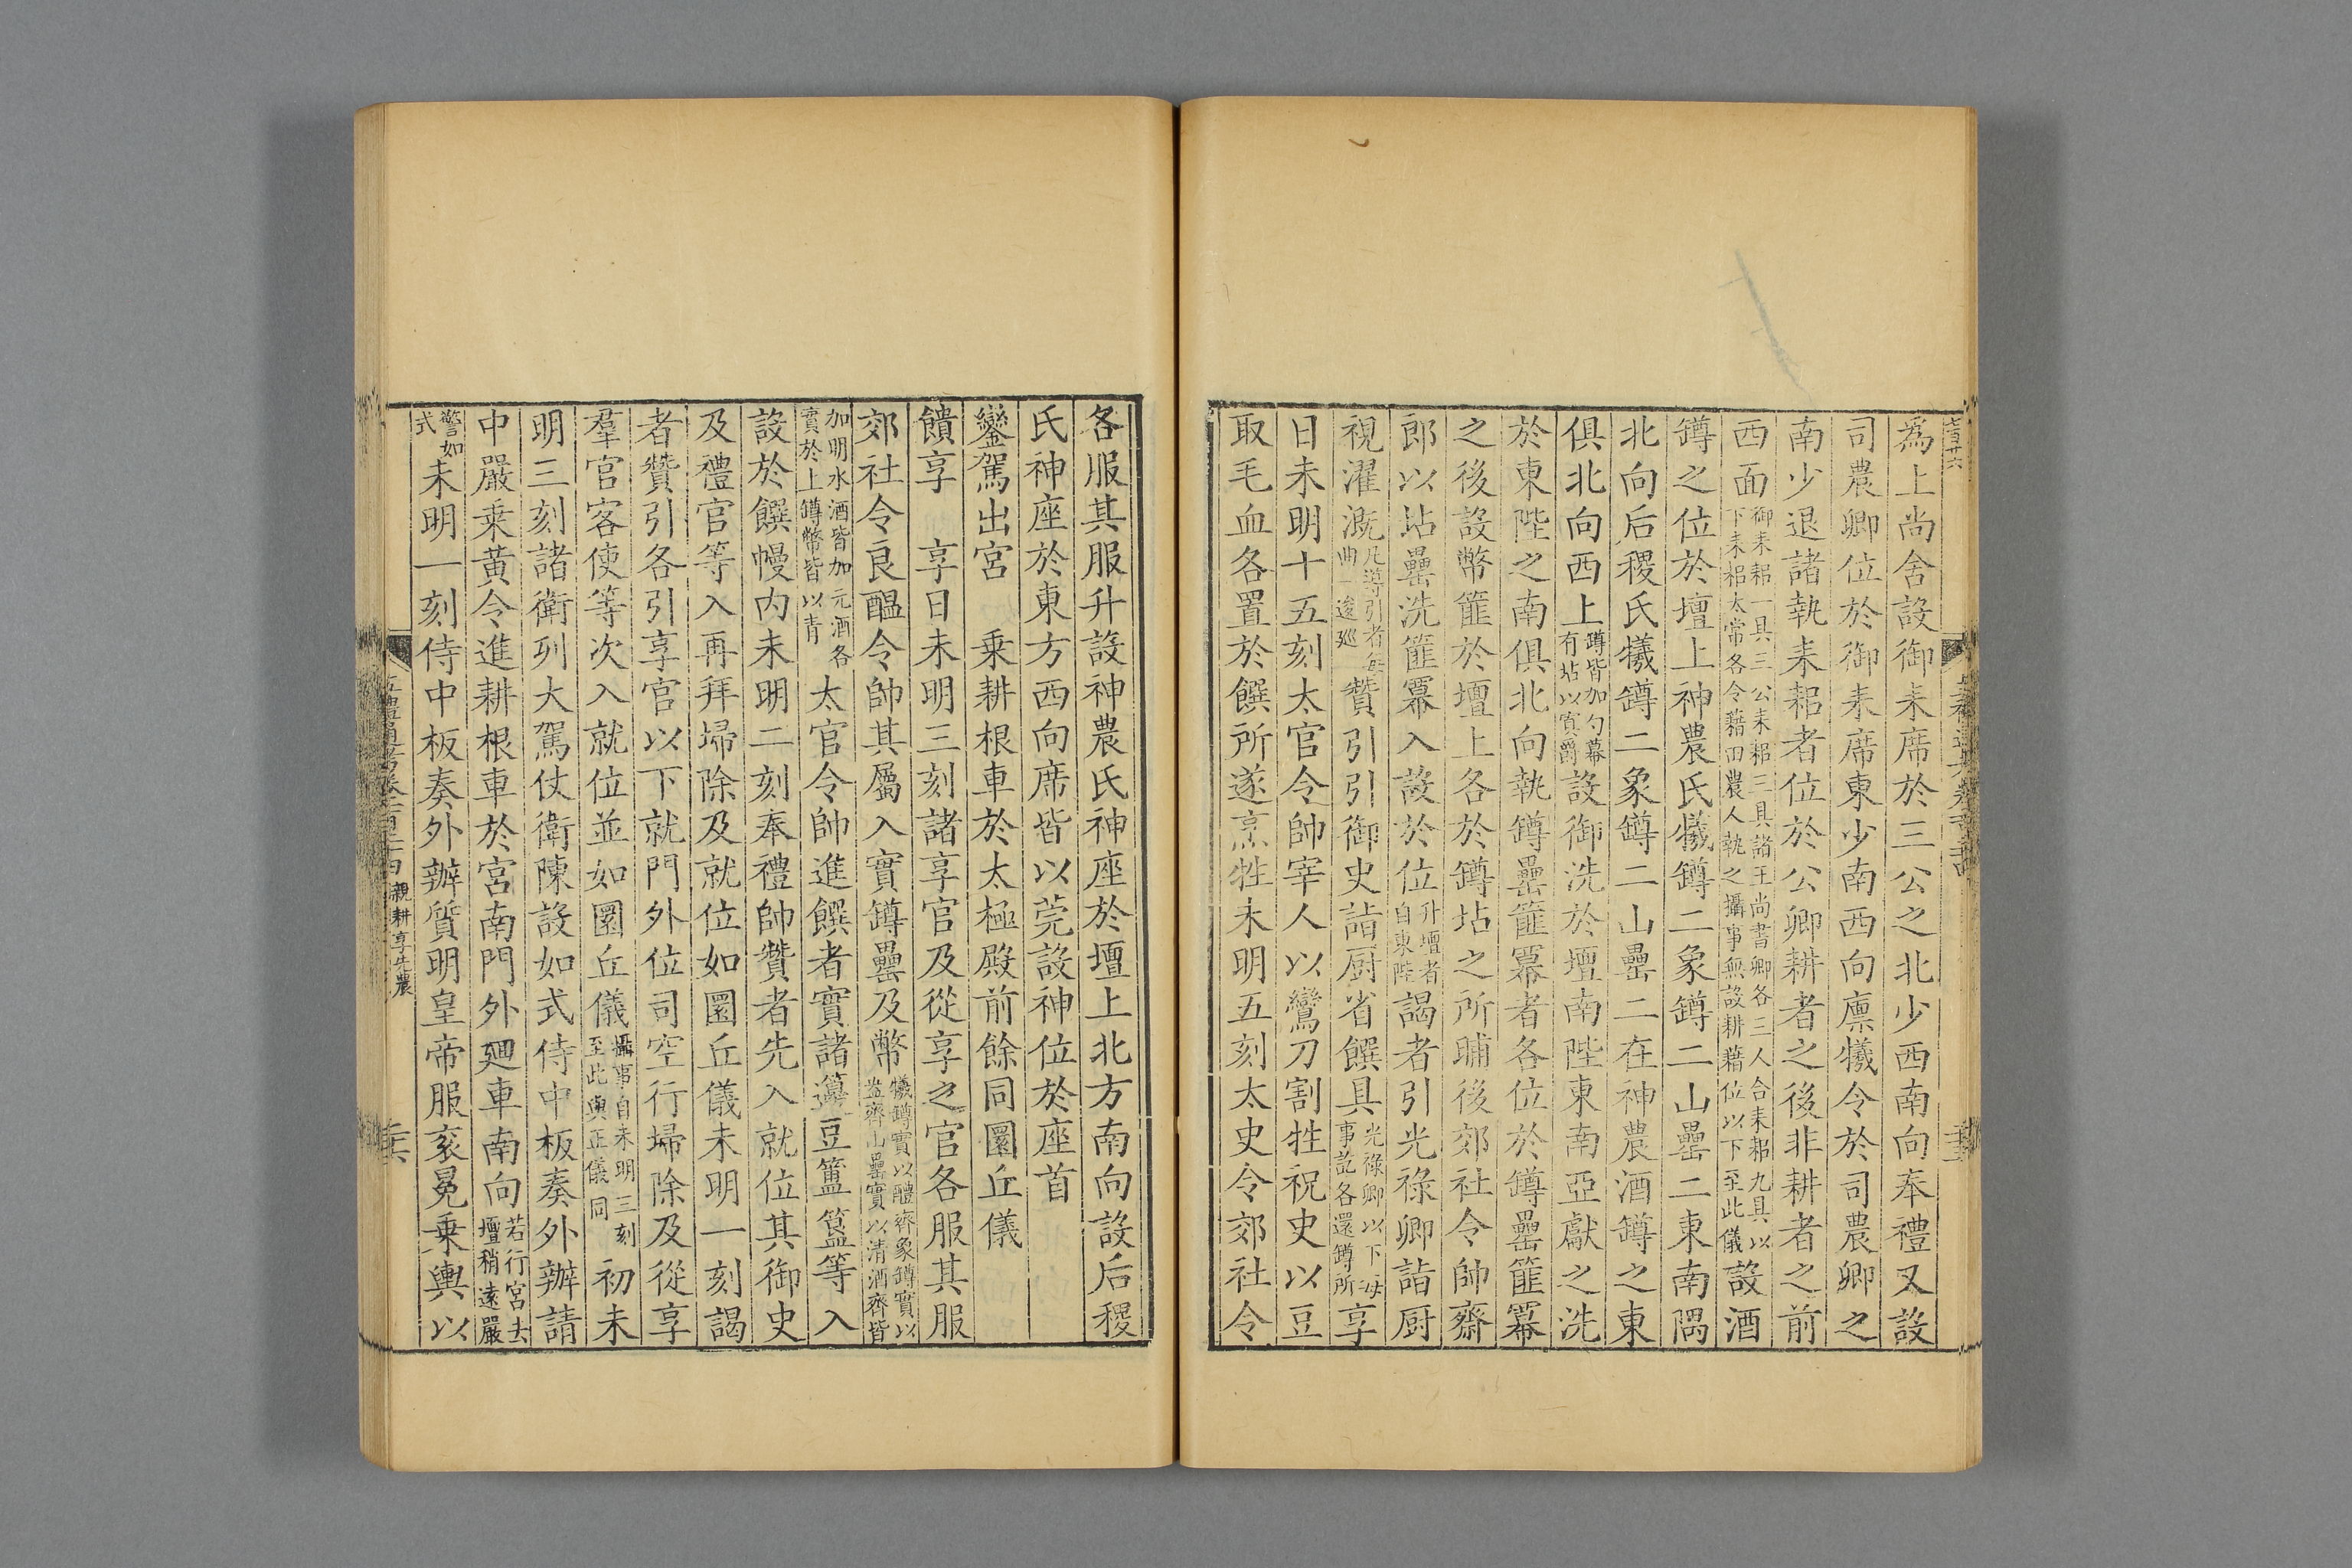 爲上尚舍設御耒席於三公之北少西南向奉禮又設
司農卿位於御耒席東少南西向廩犧令於司農卿之
南少退諸執耒耜者位於公卿耕者之後非耕者之前
西面御耒耜一具三公耒耜三具諸王尚書卿各三人合耒耜九具以下耒耜太常各令藉田農人執之攝事無設耕藉位以下至此儀設酒
罇之位於壇上神農氏犧罇二象罇二山罍二東南隅
北向后稷氏犧罇二象罇二山罍二在神農酒罇之東
俱北向西上罇皆加勺冪有坫以實爵設御洗於壇南陛東南亞獻之洗
於東陛之南俱北向執罇罍篚冪者各位於罇罍篚冪
之後設幣篚於壇上各於罇坫之所晡後郊社令帥齋
郎以坫罍洗篚冪入設於位升壇者自東陛謁者引光祿卿詣厨
視濯溉凡導引者每曲一逡巡贊引引御史詣厨省饌具光祿卿以下每事訖各還罇所享
日未明十五刻太官令帥宰人以鸞刀割牲祝史以豆
取毛血各置於饌所遂烹牲未明五刻太史令郊社令
各服其服升設神農氏神座於壇上北方南向設后稷
氏神座於東方西向席皆以莞設神位於座首
鑾駕出宮　乗耕根車於太極殿前餘同圜丘儀
饋享　享日未明三刻諸享官及從享之官各服其服
郊社令良醞令帥其屬入實罇罍及幣犧罇實以醴齊象罇實以盎齊山罍實以清酒齊皆
加明水酒皆加元酒各實於上罇幣皆以青太官令帥進饌者實諸籩豆簠簋等入
設於饌幔內未明二刻奉禮帥贊者先入就位其御史
及禮官等入再拜埽除及就位如圜丘儀未明一刻謁
者贊引各引享官以下就門外位司空行埽除及從享
羣官客使等次入就位並如圜丘儀攝事自未明三刻至此與正儀同初未
明三刻諸衛列大駕仗衛陳設如式侍中板奏外辦請
中嚴乗黃令進耕根車於宮南門外廻車南向若行宮去壇稍遠嚴
警如式未明一刻侍中板奏外辦質明皇帝服衮冕乗輿以
親耕享先農